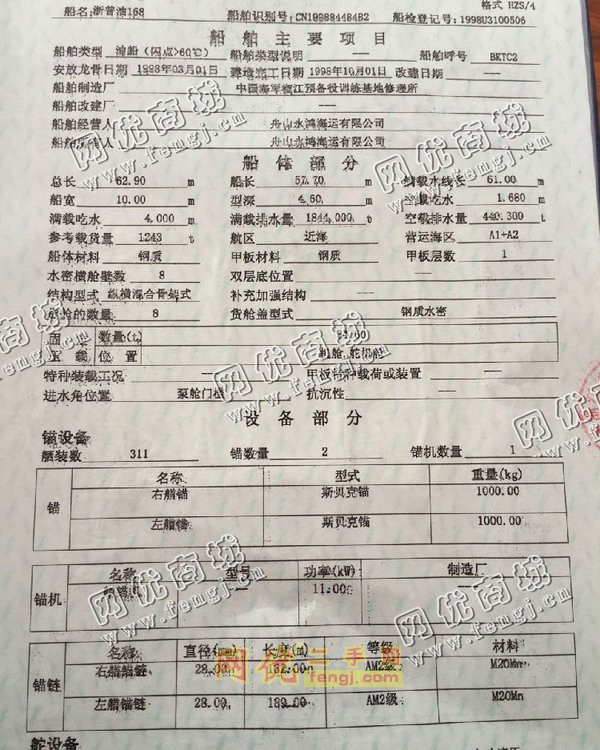 格式 HZS/4
船名:浙普油168 船舶识别号:CN199884484B2 船检登记号:1998U3100506
船舶主要项目
船舶类型 油船（闪点>60℃） 船舶类型说明 —— 船舶呼号 BKTC2
安放龙骨日期 1998年03月01日 建造完工日期 1998年10月01日 改建日期 ——
船舶制造厂 中国海军椒江预备役训练基地修理所
船舶改建厂 ——
船舶经营人 舟山永鸿海运有限公司
船舶所有人 舟山永鸿海运有限公司
船体部分
总长 62.90 m 船长 57.70 m 满载水线长 61.00 m
船宽 10.00 m 型深 4.50 m 空载吃水 1.680 m
满载吃水 4.000 m 满载排水量 1844.000 t 空载排水量 440.300 t
参考载货量 1243 t 航区 近海 营运海区 A1+A2
船体材料 钢质 甲板材料 钢质 甲板层数 1
水密横舱壁数 8 双层底位置 ——
结构型式 纵横混合骨架式 补充加强结构 ——
货舱的数量 8 货舱盖型式 钢质水密
固 数量(t)
压载 位置 机舱、舵机舱
特种装载工况 —— 甲板特种载荷或装置 ——
进水角位置 泵舱门槛 抗沉性 ——
设备部分
锚设备
舾装数 311 锚数量 2 锚机数量 1
名称 型式 重量(kg)
锚 右艏锚 斯贝克锚 1000.00
左艏锚 斯贝克锚 1000.00
名称 型号 功率(kW) 制造厂
锚机 11.000
名称 直径(mm) 长度(m) 等级 材料
锚链 右艏锚链 28.00 162.00 AM2级 M20Mn
左艏锚链 28.00 189.00 AM2级 M20Mn
舵设备
网优商城
www.fengj.com
网优二手网
fengj.com